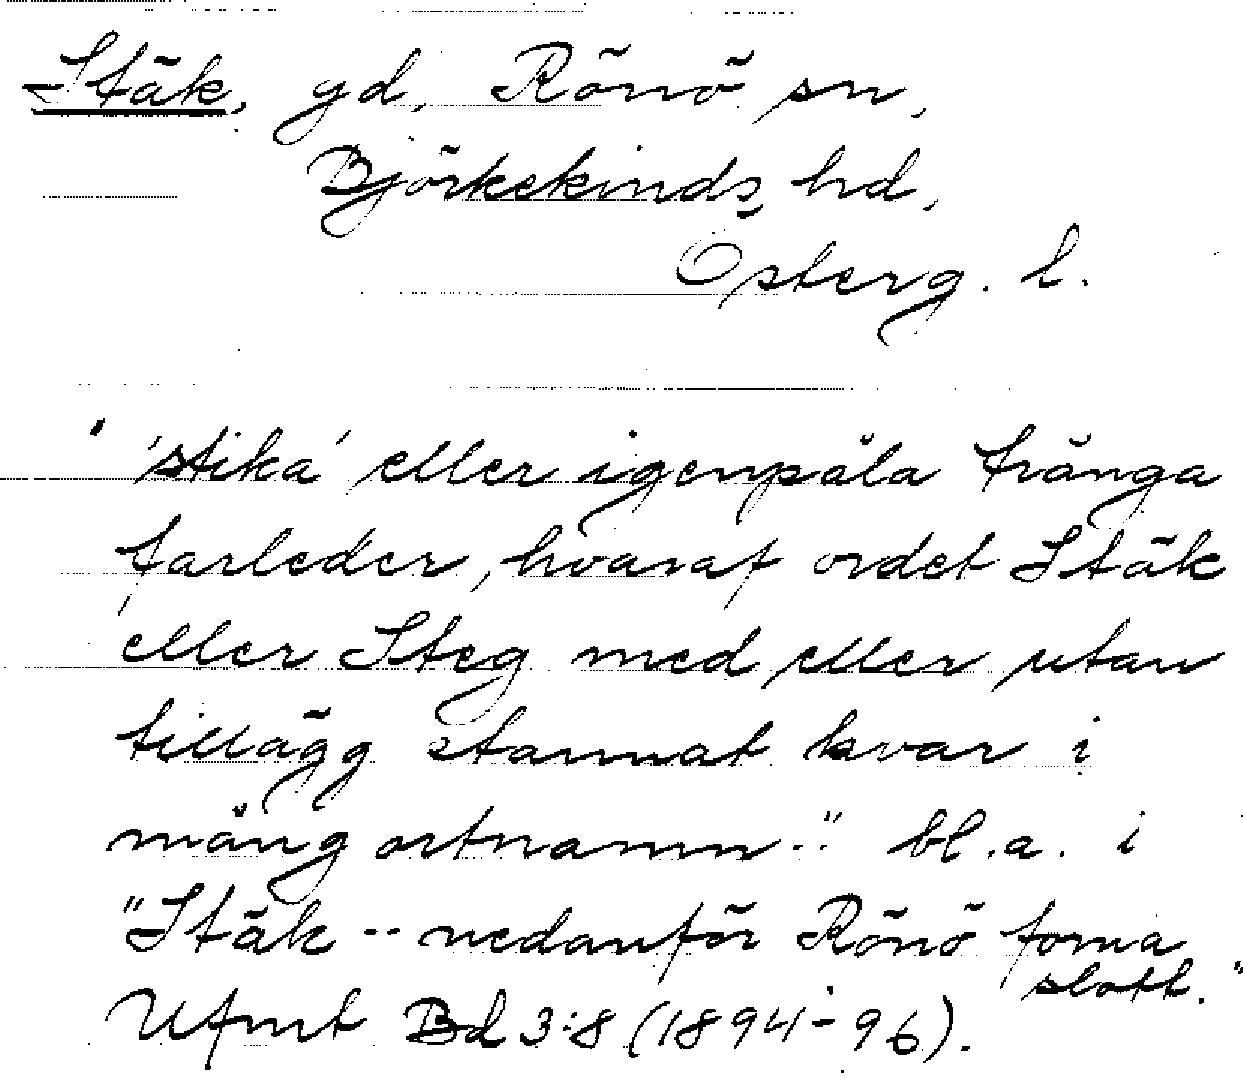 Stäk, gd, Rönö sn,
Björkekinds hd,
Österg. l.
" 'stika' eller igenpåla trånga
farleder, hvaraf ordet Stäk
eller Steg med eller utan
tillägg stannat kvar i
mång ortnamn.." bl.a. i
"Stäk -- nedanför Rönö forna
slott."
Ufmt Bd 3:8 (1894-96).